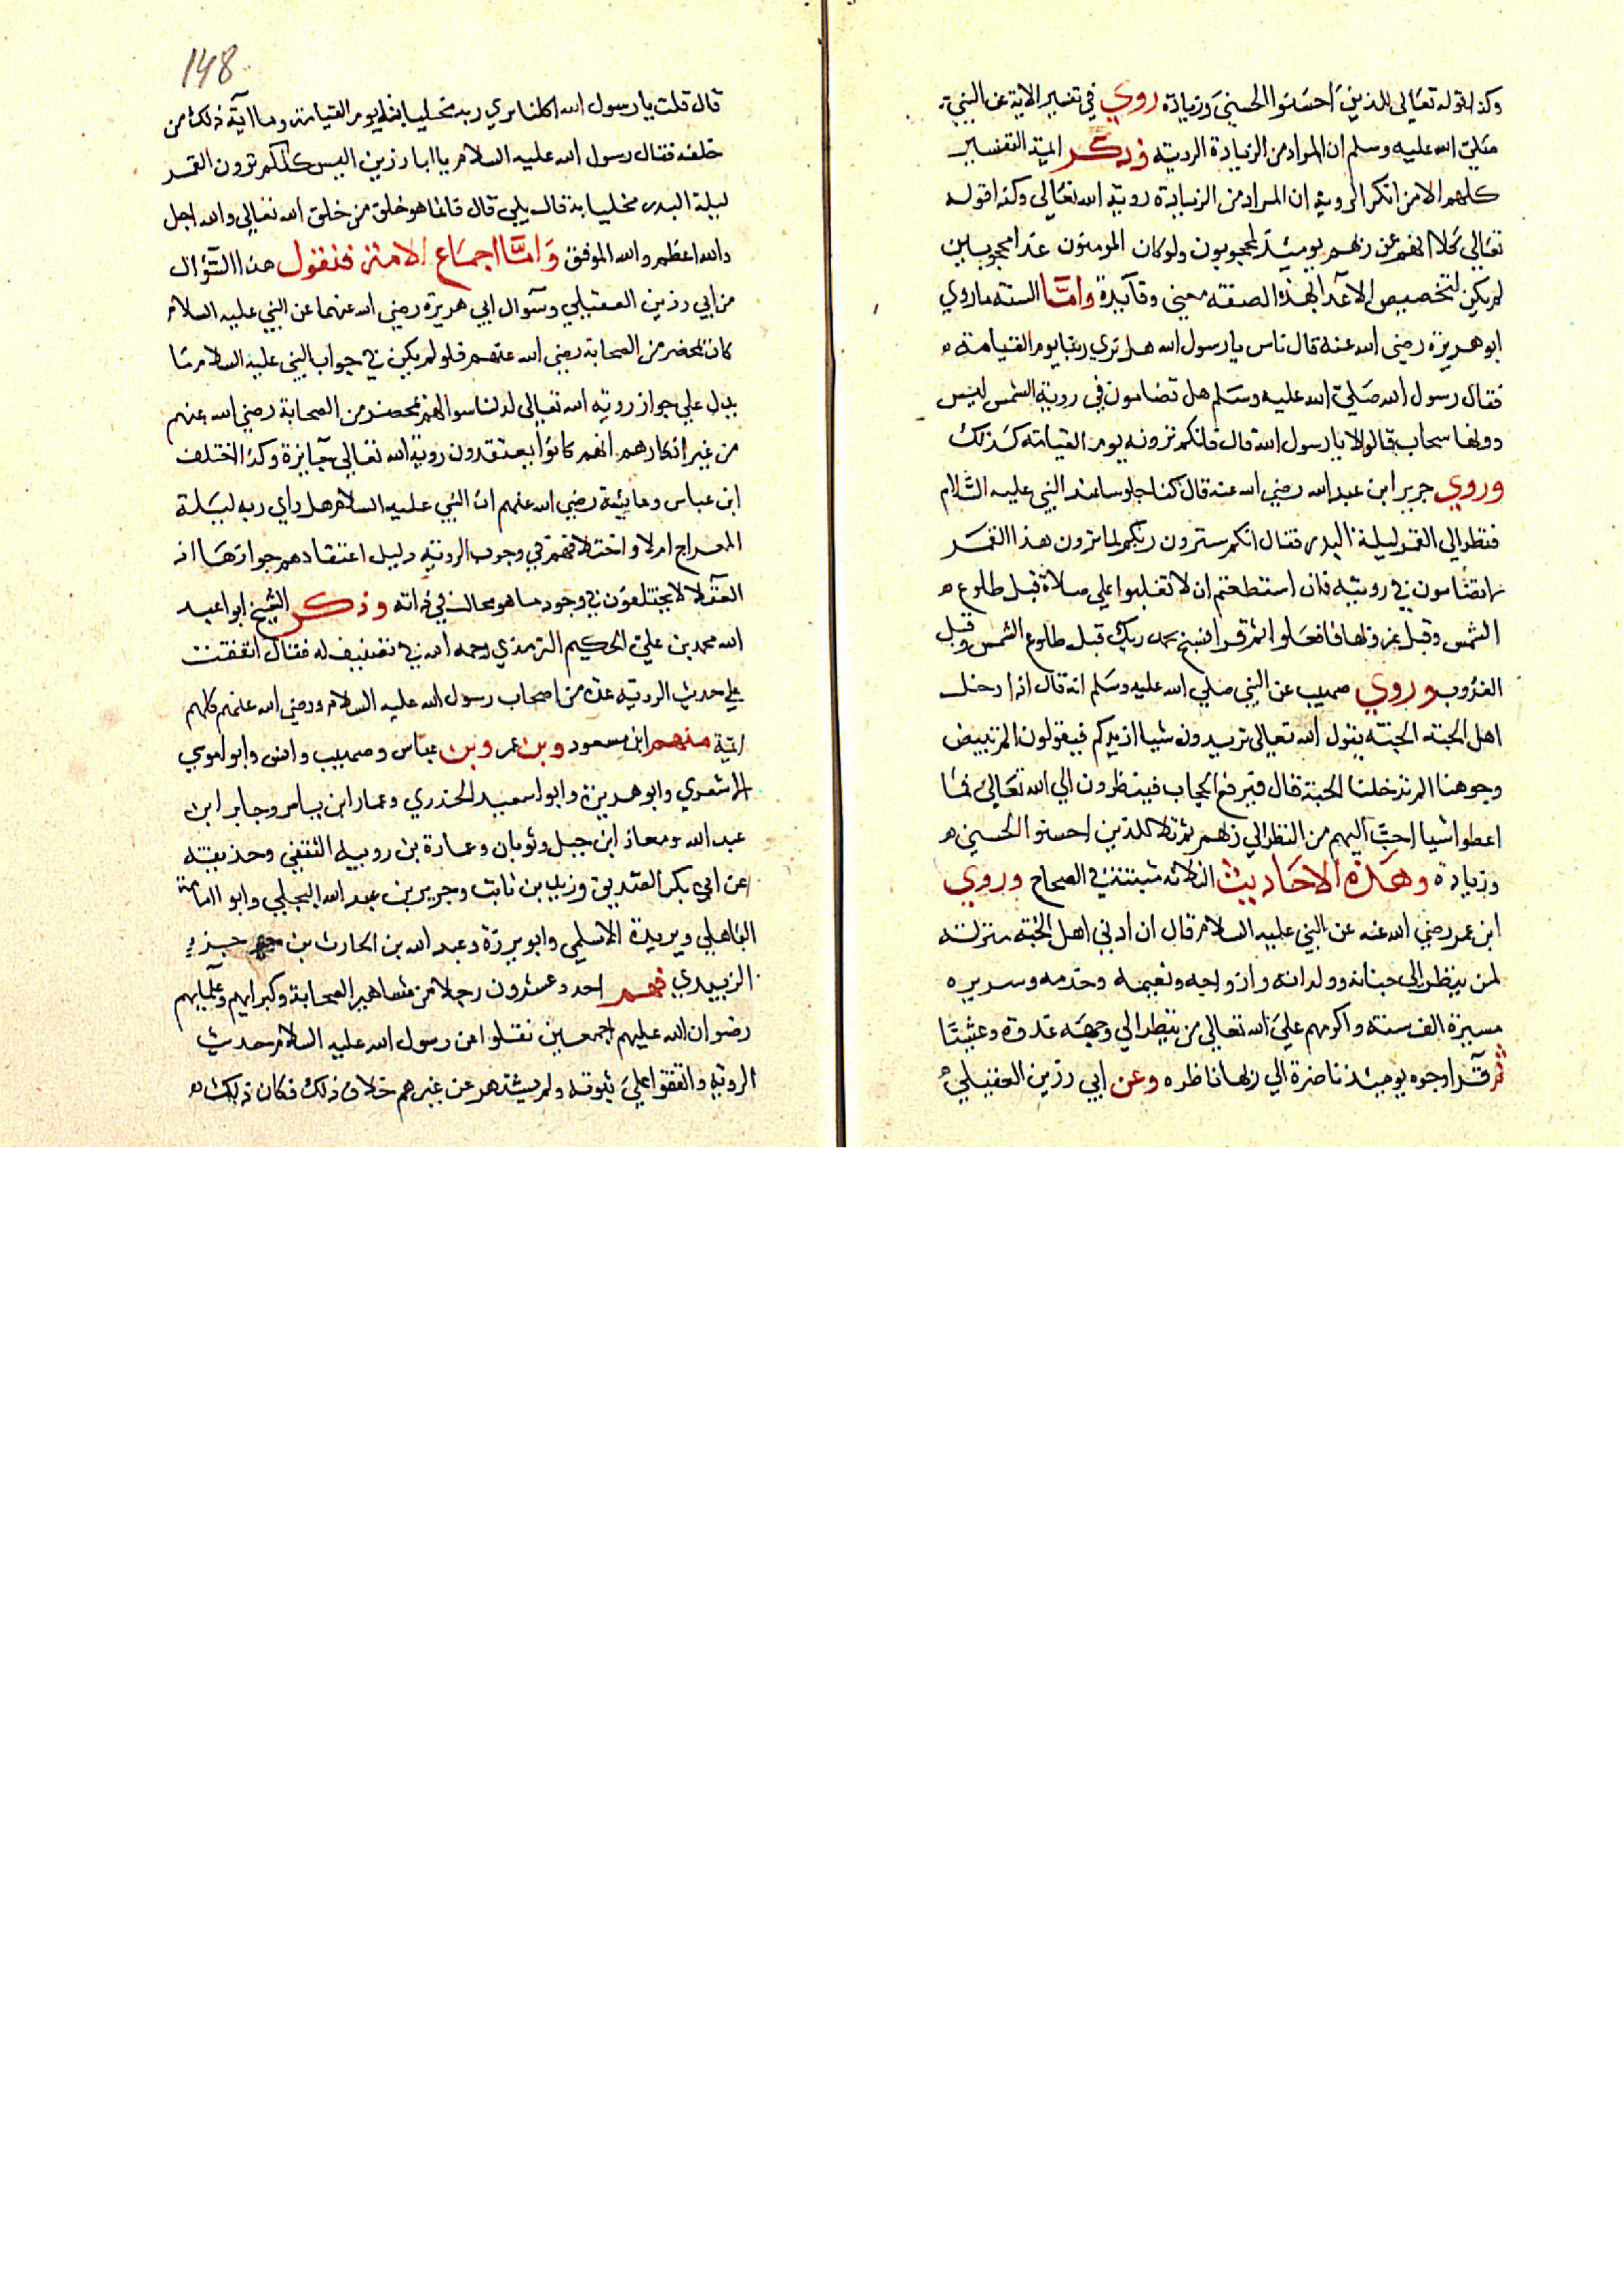 وكذا قوله تعالى للذين احسنوا الحسنى وزيادة روي في تفسير الاية عن النبي
صلى الله عليه وسلم ان المراد من الزيادة الروية وذكر ايمة التفسير
كلهم الا من انكر الروية ان المراد من الزيادة روية الله تعالى وكذا قوله
تعالى كلا انهم عن ربهم يوميذ لمحجوبون ولو كان المومنون عدا محجوبين
لم يكن لتخصيص الاعدا بهذه الصفة معنى وفايدة واما السنة ما روي
ابو هريرة رضي الله عنه قال ناس يا رسول الله هل نري ربنا يوم القيامة
فقال رسول الله صلى الله عليه وسلم هل تضامون في روية الشمس ليس
دونها سحاب قالوا لا يا رسول الله قال فانكم ترونه يوم القيامة كذلك
وروي جرير ابن عبد الله رضي الله عنه قال كنا جلوسا عند النبي عليه السلام
فنظر الي القمر ليلة البدر فقال انكم سترون ربكم كما ترون هذا القمر
لا تضامون في رويته فان استطعتم ان لا تغلبوا علي صلاة قبل طلوع
الشمس وقبل غروبها فافعلوا ثم قرا فسبح بحمد ربك قبل طلوع الشمس وقبل
الغروب وروي صهيب عن النبي صلي الله عليه وسلم انه قال اذا دخل
اهل الجنة الجنة يقول الله تعالى تريدون شيا ازيدكم فيقولون الم تبيض
وجوهنا الم تدخلنا الجنة قال فيرفع الحجاب فينظرون الي الله تعالى فما
اعطوا شيا احب اليهم من النظر الي ربهم ثم تلا للذين احسنوا الحسني
وزيادة وهذه الاحاديث الثلاثة مثبتة في الصحاح وروي
ابن عمر رضي الله عنه عن النبي عليه السلام قال ان ادني اهل الجنة منزلة
لمن ينظر الى جنانه وولدانه وازواجه ونعيمه وخدمه وسريره
مسيرة الف سنة واكرمهم على الله تعالي من ينظر الي وجهه غدوة وعشيا
ثم قرا وجوه يوميذ ناضرة الي ربها ناظره وعن ابي رزين العقيلي
148
قال قلت يا رسول الله اكلنا يري ربه مخليا به يوم القيامة وما اية ذلك من
خلقه فقال رسول الله عليه السلام يا ابا رزين اليس كلكم ترون القمر
ليلة البدر مخليا به قال بلي قال فانما هو خلق من خلق الله تعالي والله اجل
والله اعظم والله الموفق واما اجماع الامة فنقول هذا السؤال
من ابي رزين العقيلي وسوال ابي هريرة رضي الله عنهما عن النبي عليه السلام
كان بمحضر من الصحابة رضي الله عنهم فلو لم يكن في جواب النبي عليه السلام ما
يدل علي جواز روية الله تعالي لدل سوالهم بمحضر من الصحابة رضي الله عنهم
من غير انكارهم انهم كانوا يعتقدون روية الله تعالي جايزة وكذا اختلف
ابن عباس وعايشة رضي الله عنهم ان النبي عليه السلام هل راي ربه ليلة
المعراج ام لا واختلافهم في وجوب الروية دليل اعتقادهم جوازها اذ
العقلا لا يختلفون في وجود ما هو محال في ذاته وذكر الشيخ ابو اعبد
الله محمد بن علي الحكيم الترمذي رحمه الله في تصنيف له فقال اتفقت
علي حديث الروية عدة من اصحاب رسول الله عليه السلام ورضي الله عنهم كلهم
ايمة منهم ابن مسعود وبن عمر وبن عباس وصهيب وانس وابو موسي
الاشعري وابو هريرة وابوا سعيد الخدري وعمار ابن ياسر وجابر ابن
عبد الله ومعاذ ابن جبل وثوبان وعمارة بن رويبه الثقفي وحذيفة
عن ابي بكر الصديق وزيد بن ثابت وجرير بن عبد الله البجلي وابو امامة
الباهلي وبريدة الاسلمي وابو برزة وعبد الله بن الحارث بن جزء
الزبيدي فهم احد وعشرون رجلا من مشاهير الصحابة وكبرايهم وعلمايهم
رضوان الله عليهم اجمعين نقلوا عن رسول الله عليه السلام حديث
الروية واتفقوا علي ثبوته ولم يشتهر عن غيرهم خلاف ذلك فكان ذلك